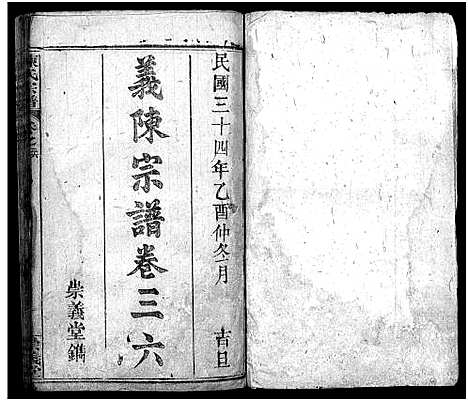 民國三十四年乙酉仲冬月 吉旦
義陳宗譜卷三六
崇義堂鐫